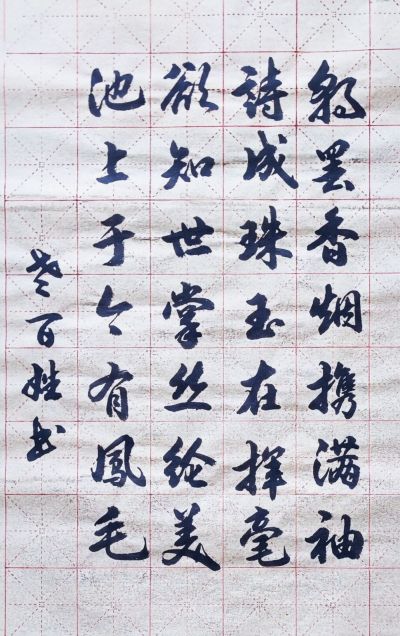 朝罢香烟携满袖
詩成珠玉在揮毫
欲知世掌丝纶美
池上于今有鳳毛
老百姓书